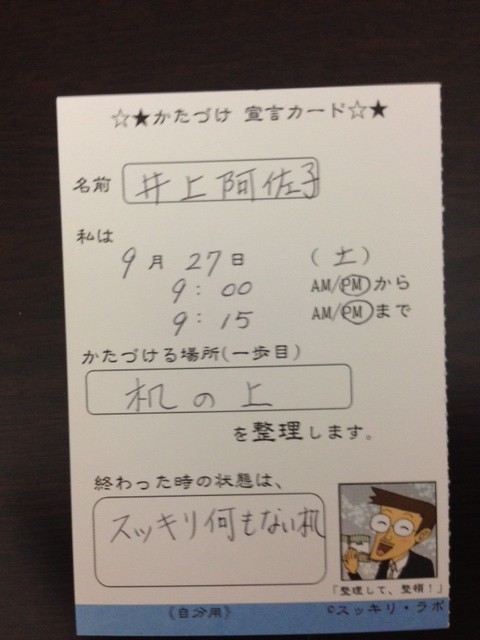 ☆★かたづけ 宣言カード☆★
名前 井上阿佐子
私は
9月27日 (土)
9:00 AM/PMから
9:15 AM/PMまで
かたづける場所(一歩目)
机の上
を整理します。
終わった時の状態は、
スッキリ何もない机
「整理して、整頓!」
《自分用》 ©スッキリ・ラボ